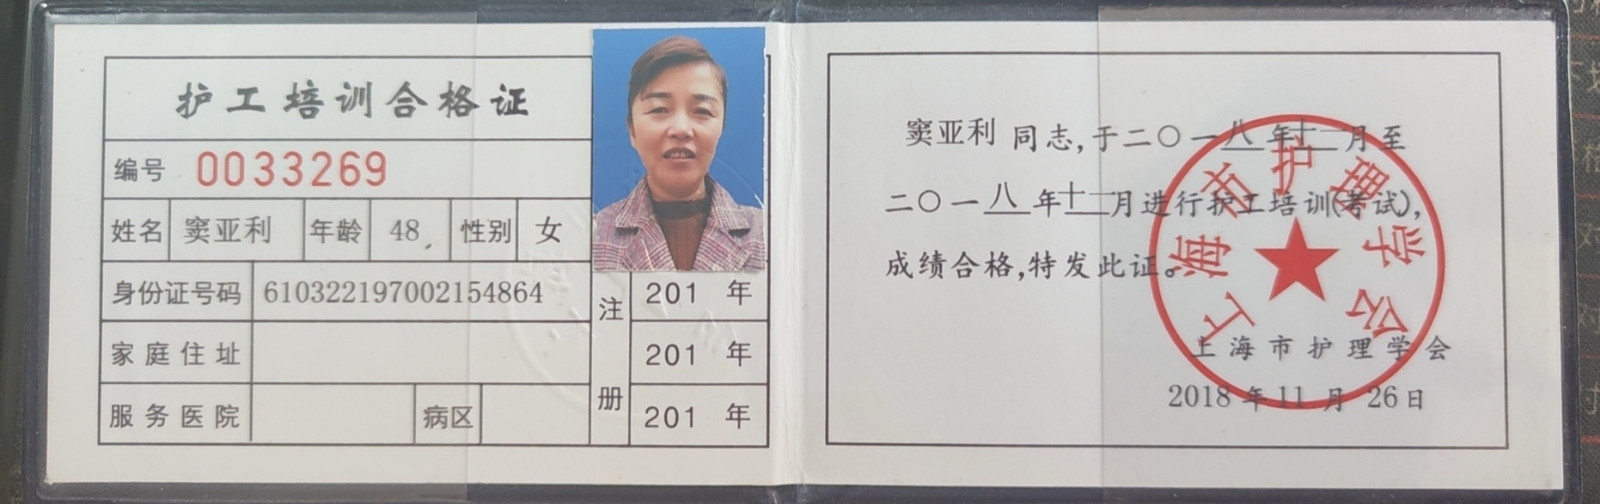 护工培训合格证
编号 0033269
姓名 窦亚利 年龄 48 性别 女
身份证号码 610322197002154864
家庭住址
服务医院 病区
注册
201 年
201 年
201 年
窦亚利 同志,于二〇一八年十一月至
二〇一八年十一月进行护工培训(考试),
成绩合格,特发此证。
上海市护理学会
上海市护理学会
2018年11月26日